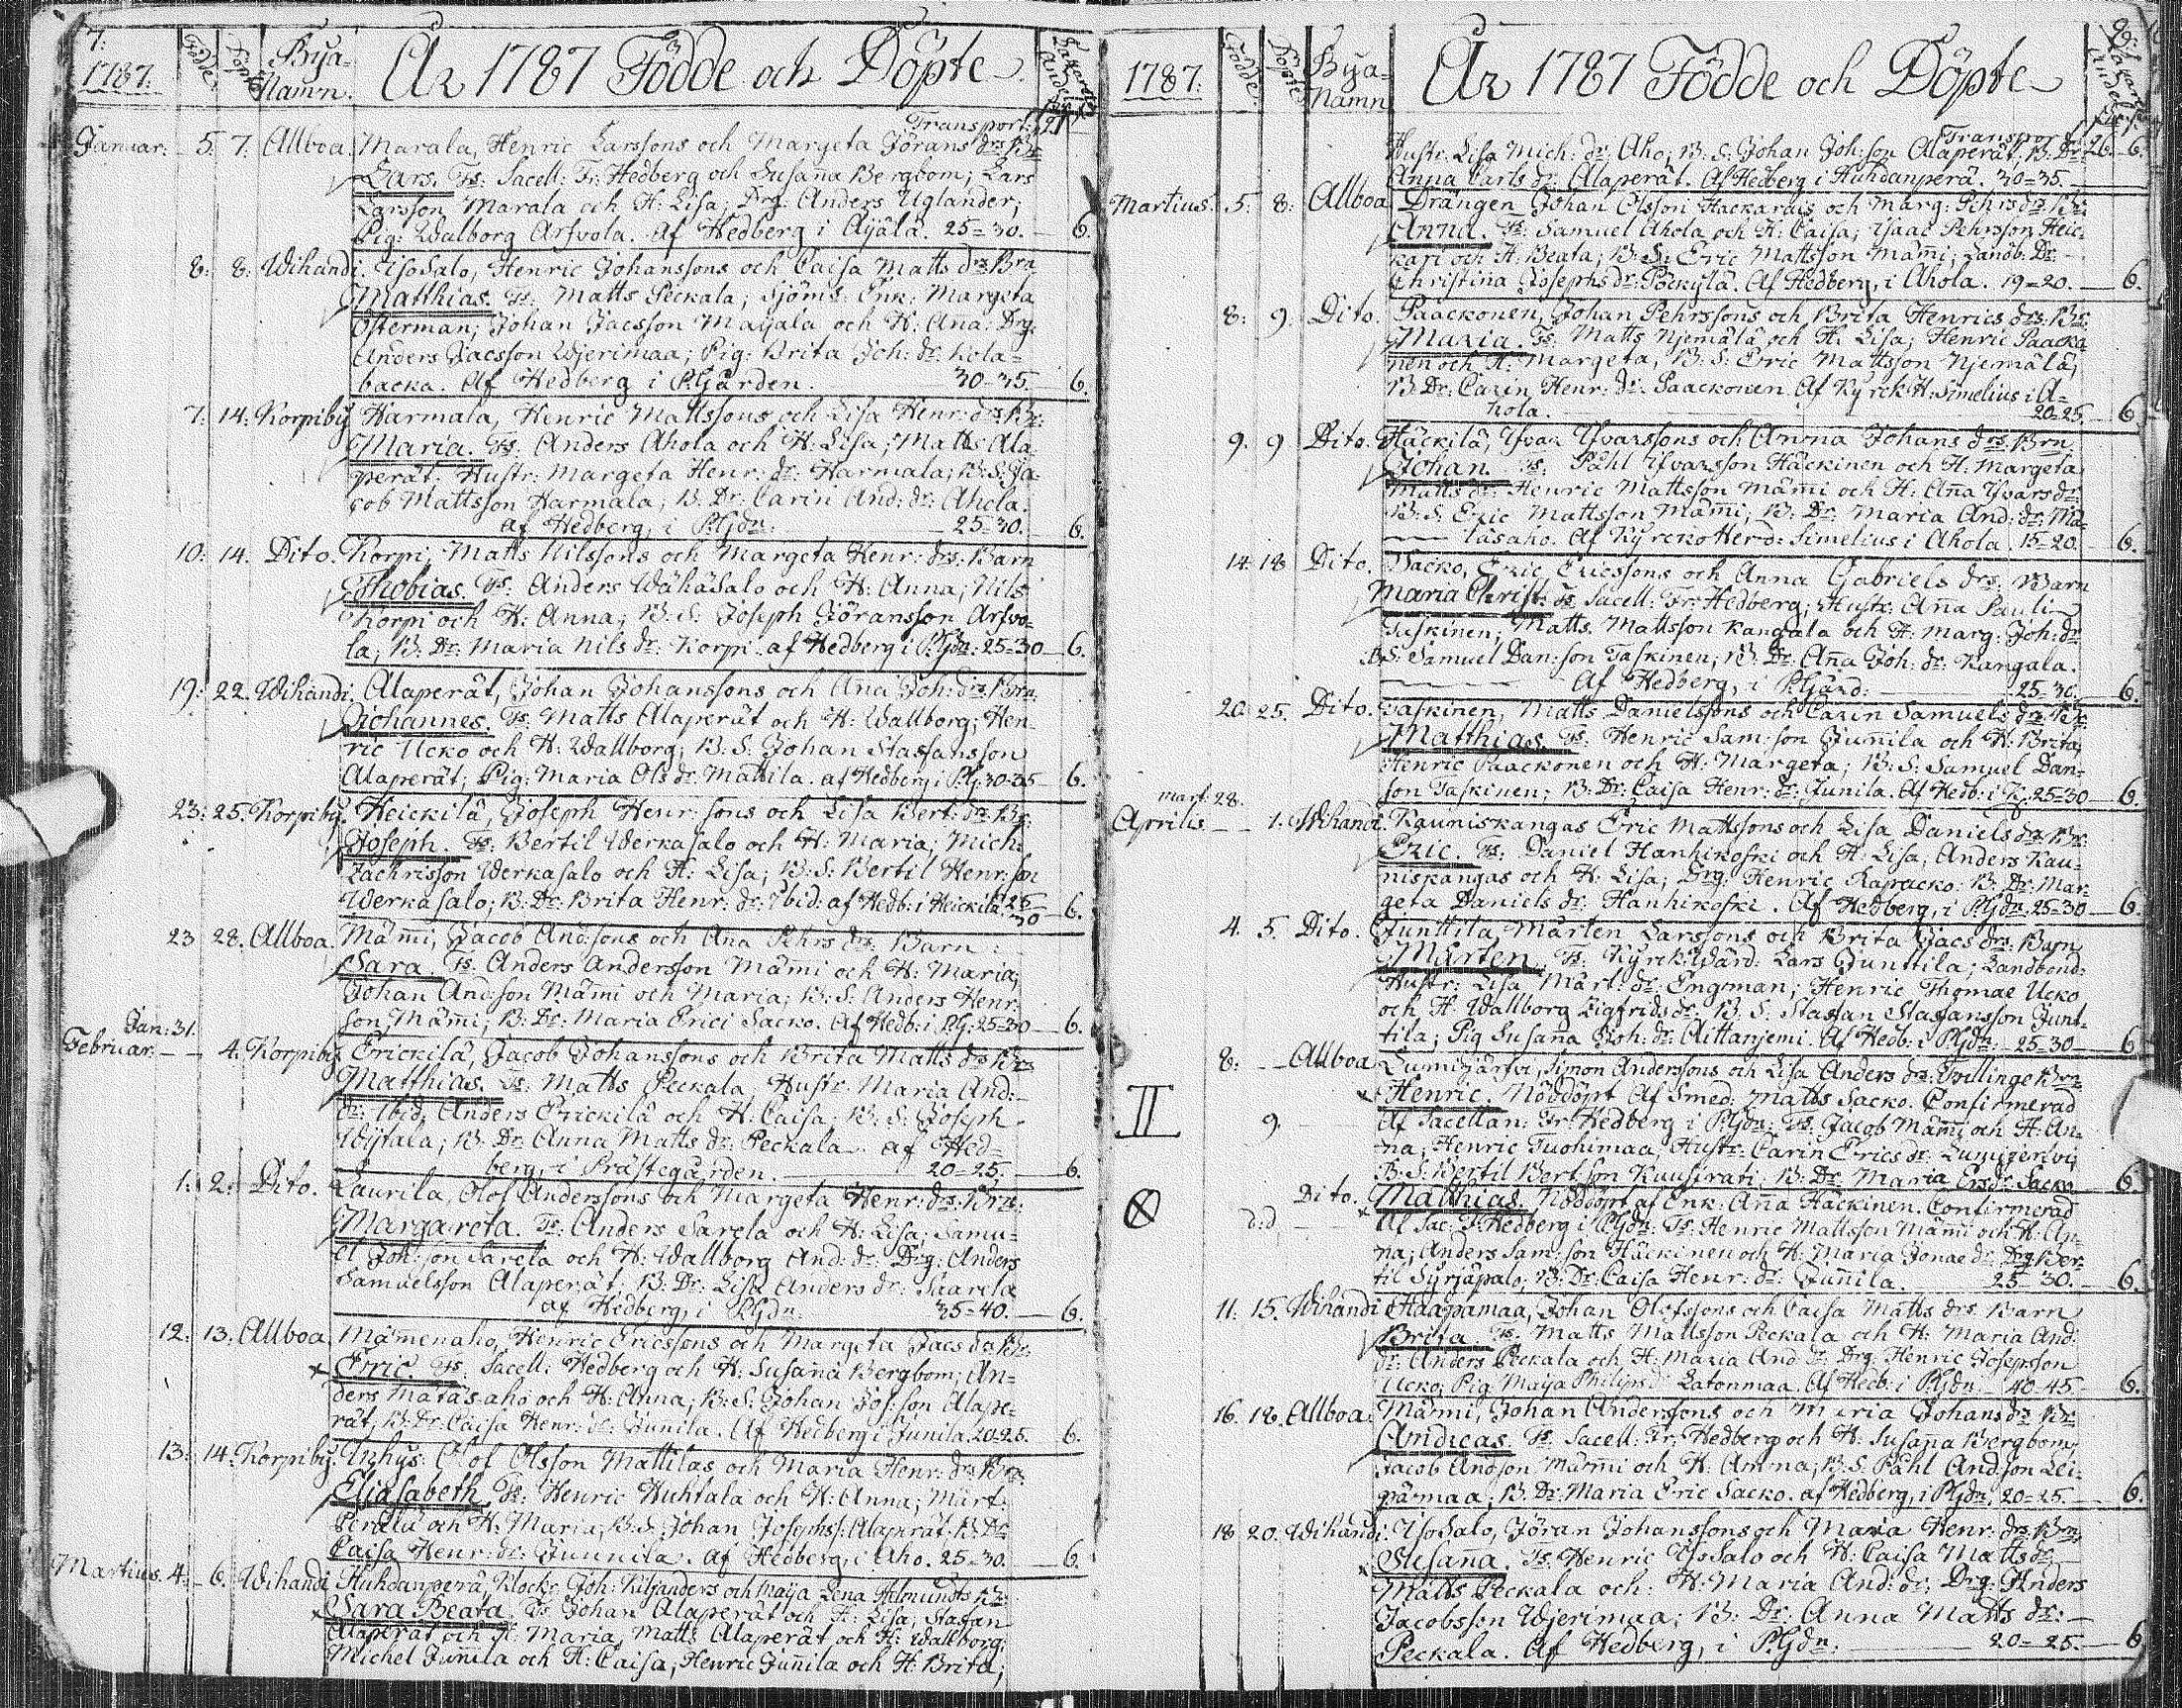 7:
1787:
Födde.
Döpte
Bÿa-
Namn.
År 1787 Födde och Döpte
Transport: 121
Januar: 5. 7. Allboa. Marala, Henric Larssons och Margeta Jörans drs: Br:
Lars. Ts: Sacell: Fr: Hedberg och Susaña Bergbom; Lars
Larsson Marala och H: Lisa; Drg: Anders Uglander;
Pig: Walborg Arfvola. af Hedberg i Aÿälä. 25=30. 6.
8: 8: Wihandi. YsoSalo, Henric Johanssons och Caisa Matts drs Brn
Matthias. Ts: Matts Peckala; Sjöms: Enk: Margeta
Österman; Johan Jacsson Maÿala och H: Aña: Drg:
Anders Jacsson Wjerimaa; Pig: Brita Joh: dr: Kola=
backa. Af Hedberg i P:Gården. 30=35. 6.
7: 14: Korpibÿ Harmala, Henric Mattssons och Lisa Henr: drs: Br:
Maria. Ts: Anders Ahola och H: Lisa; Matts Ala
perät: Hustr: Margeta Henr: dr: Harmala; B: S: Ja=
cob Mattsson Harmala; B: Dr: Carin And: dr: Ahola.
af Hedberg, i P:Gdn: 25=30. 6.
10: 14. Dito. Korpi, Matts Nilssons och Margeta Henr: drs: Barn
Thobias. Ts: Anders WähäSalo och H: Anna; Nils
Korpi och H: Anna; B: S: Joseph Göransson Arfvo=
la; B: Dr: Maria Nils dr: Korpi. af Hedberg i P:Gdn: 25=30 6.
19: 22. Wihandi. Alaperät, Johan Johanssons och Aña Joh: drs: Brn:
Johannes. Ts: Matts Alaperät och H: Wallborg; Hen=
ric Ucko och H: Wallborg; B: S: Johan Staffansson
Alaperät; Pig: Maria Ols dr: Mattila. af Hedberg i P:G: 30-35 6.
23: 25. Korpibÿ. Heickilä, Joseph Henr: sons och Lisa Bert: drs: Br:
Joseph. Ts: Bertil Werkasalo och H: Maria; Mich:
Zachrisson Werkasalo och H: Lisa; B: S: Bertil Henr: son
Werkasalo; B: Dr: Brita Henr: dr: ibid: af Hedb: i Heickilä 25=30 6.
23 28. Allboa. Mäm̃i, Jacob And:sons och Aña Pehrs drs: Barn:
Sara. Ts: Anders Andersson Mäm̃i och H: Maria;
Johan And:son Mäm̃i och Maria; B: S: Anders Henr:
son Mäm̃i; B: Dr: Maria Erici Sacko. Af Hedb: i P:G: 25=30 6.
Jan: 31.
Februar: 4. Korpibÿ Erickilä, Jacob Johanssons och Brita Matts drs Brn
Matthias. Ts: Matts Peckala; Hustr: Maria And:
dr: ibid: Anders Erickilä och H: Caisa; B: S: Joseph
Wÿtala; B: Dr: Anna Matts dr: Peckala. af Hed=
berg, i Prästegården. 20=25. 6.
1: 2: Dito. Laurila, Olof Anderssons och Margeta Henr: drs: Brn:
Margareta. Ts: Anders Sarela och H: Lisa; Samu=
el Joh: son Sarela och H: Wallborg And: dr: Drg: Anders
Samuelsson Alaperät; B: Dr: Lisa Anders dr: Saarela
af Hedberg, i P:Gdn: 35=40. 6.
12: 13. Allboa. Mäm̃enaho, Henric Ericssons och Margeta Jacs drs Br:
Eric. Ts. Sacell: Hedberg och H: Susaña Bergbom; An=
ders Matäsaho och H: Anna; B: S: Johan Jos: son Alape=
rät; B: Dr: Caisa Henr: dr: Junila. Af Hedberg i Junila. 20=25. 6.
13: 14. Korpibÿ. Inhÿs: Olof Olsson Mattilas och Maria Henr: drs Brn:
Eliasabeth. Ts: Henric Huhtala och H: Anna; Märt:
Perälä och H: Maria; B: S: Johan Josephss: Alaperät. B: Dr:
Caisa Henr: dr: Junnila. af Hedberg, i Aho. 25=30. 6.
Martius. 4: 6. Wihandi Huhdanperä, Klock: Joh: Kiljanders och Maija Lena Holmunds Br:
Sara Beata. Ts: Johan Alaperät och H: Lisa; Stafan
Alaperät och H: Maria, Matts Alaperät och H: Wallborg;
Michel Juñila och H: Caisa; Henric Juñila och H: Brita;
1787:
Födde.
Döpte.
Bÿa=
Namn
År 1787 Födde och Döpte
Transport 26. 6.
Hustr: Lisa Mich: dr: Aho; B: S: Johan Joh: son Alaperät; B: Dr:
Anna Carls dr: Alaperät. Af Hedberg i Huhdanperä. 30=35.
Martius. 5: 8: Allboa Drängen Johan Olsson Hackarais och Marg: Pehrs drs: Br:
Anna. Ts: Samuel Ahola och H: Caisa; Isaac Pehrsson Heic
kari och H: Beata; B: S: Eric Mattsson Mäm̃i; Landb: Dr:
Christina Josephs dr: Pöckÿlä. Af Hedberg, i Ahola. 19=20. 6.
8: 9. Dito. Paackonen, Johan Pehrssons och Brita Henrics drs: Br:
Maria. Ts: Matts Njemälä och H: Lisa; Henric Paacko
nen och H: Margeta, B: S: Eric Mattsson Njemälä;
B: Dr: Carin Henr: dr: Paackonen. Af Kÿrck H: Simelius i A=
hola. 20=25. 6.
9. 9 Dito. Häckilä, Yfvar Yfvarssons och Anna Johans drs: Brn
Johan. Ts: Påhl Yfvarsson Häckinen och H: Margeta
Matts dr: Henric Mattsson Mäm̃i och H: Aña Yfvars dr:
B: S: Eric Mattsson Mäm̃i; B: Dr: Maria And: dr: Ma=
täsaho. Af Kÿrcko Herd: Simelius i Ahola. 15=20. 6.
14 18 Dito. Sacko, Eric Ericssons och Anna Gabriels drs: Barn
Maria Christ: Ts Sacell: Fr: Hedberg; Hustr: Aña Paulin
Taskinen; Matts Mattsson Kangala och H: Marg: Joh: dr
B: S: Samuel Dan: son Taskinen; B: Dr: Aña Joh: dr: Kangala.
Af Hedberg, i P:Gård: 25=30. 6.
20. 25. Dito. Taskinen, Matts Danielssons och Carin Samuels drs: Br:
Matthias. Ts: Henric Sam: son Juñila och H: Brita;
Henric Paackonen och H: Margeta; B: S: Samuel Dan=
son Taskinen; B: Dr: Caisa Henr: dr: Junila. Af Hedb: i 25=30 6.
mart: 28.
Aprilis 1. Wihandi. Kauniskangas Eric Mattssons och Lisa Daniels drs Br:
Eric. Ts: Daniel Hanhikoski och H: Lisa; Anders Kau=
niskangas och H: Lisa; Drg: Henric Rapacko. B: Dr: Mar=
geta Daniels dr: Hanhikoski. Af Hedberg, i P:Gdn. 25=30 6.
4. 5. Dito. Junttila, Mårten Larssons och Brita Jacs drs: Barn
Mårten. Ts: KÿrckWärd: Lars Junttila; Landbond:
Hustr: Lisa Märt: dr: Engman; Henric Thomae Ucko
och H: Wallborg Zigfrids dr: B: S: Staffan Staffansson Junt=
tila; Pig Susaña Joh: dr: Aittanjemi. Af Hedb: i P:Gdn: 25=30 6.
8: Allboa Lumijärfvi, Simon Anderssons och Lisa Anders drs: Tvillinge Brn
II
Henric. Nöddöpt af Smed: Matts Sacko. Confirmerad
9. Af Sacellan: Fr: Hedberg i P:Gdn: Ts: Jacob Mäm̃i och H: An=
na; Henric Tuohimaa; Hustr: Carin Erics dr: Lumijerfvi;
B: S: Bertil Bertson Kuusirati; B: Dr: Maria Ers dr: Sacko 6.
⊗ d:d
Dito. Matthias. Nöddöpt af Enk: Aña Häckinen. Confirmerad
Af Sac: F: Hedberg i P:Gdn: Ts: Henric Mattsson Mäm̃i och H: An=
na; Anders Sam: son Häckinen och H: Maria Jonae dr: Drg: Ber=
til Sÿrjäpalo; B: Dr: Caisa Henr: dr: Juñila. 25=30. 6.
11: 15. Wihandi Haapamaa, Johan Olofssons och Caisa Matts drs: Barn
Brita. Ts: Matts Mattsson Peckala och H: Maria And:
dr: Anders Peckala och H: Maria And: dr: Drg: Henric Josepsson
Ucko; Pig Maija Philips dr: Latonmaa. Af Hedb: i P:Gdn: 40=45. 6.
16. 18. Allboa. Mäm̃i, Johan Anderssons och Maria Johans drs Br:
Andreas. Ts. Sacell: Fr: Hedberg och H: Susaña Bergbom;
Jacob Andson Mäm̃i och H: Anna; B: S: Påhl And:son Lei=
pämaa; B: Dr: Maria Eric Sacko. af Hedberg, i P:Gdn: 20=25. 6.
18 20. Wihandi. YsoSalo, Jöran Johanssons och Maria Henr: drs: Brn:
Susaña. Ts: Henric YsoSalo och H: Caisa Matts dr:
Matts Peckala och H: Maria And: dr; Drg: Anders
Jacobsson Wjerimaa; B: Dr: Anna Matts dr:
Peckala. Af Hedberg, i P:Gdn: 20=25. 6.